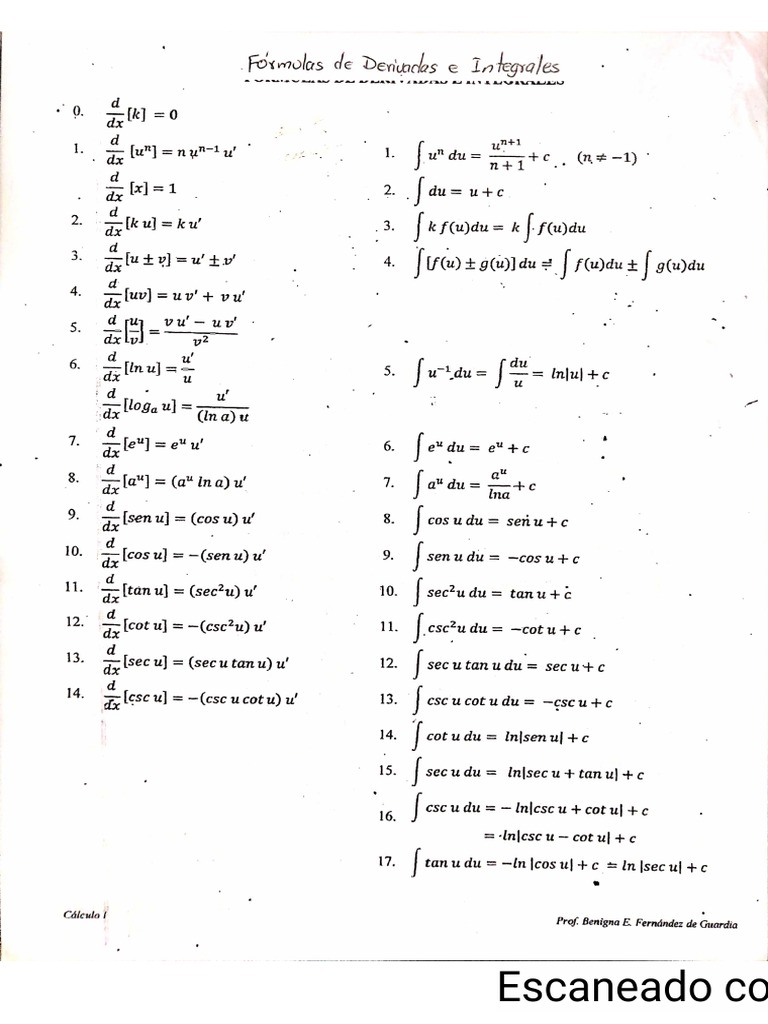 Fórmulas de Derivadas e Integrales
FÓRMULAS DE DERIVADAS E INTEGRALES
0. d/dx [k] = 0
1. d/dx [uⁿ] = n uⁿ⁻¹ u′
d/dx [x] = 1
2. d/dx [k u] = k u′
3. d/dx [u ± v] = u′ ± v′
4. d/dx [uv] = u v′ + v u′
5. d/dx [u/v] = (v u′ − u v′)/v²
6. d/dx [ln u] = u′/u
d/dx [logₐ u] = u′/((ln a) u)
7. d/dx [eᵘ] = eᵘ u′
8. d/dx [aᵘ] = (aᵘ ln a) u′
9. d/dx [sen u] = (cos u) u′
10. d/dx [cos u] = −(sen u) u′
11. d/dx [tan u] = (sec²u) u′
12. d/dx [cot u] = −(csc²u) u′
13. d/dx [sec u] = (sec u tan u) u′
14. d/dx [csc u] = −(csc u cot u) u′
1. ∫ uⁿ du = uⁿ⁺¹/(n + 1) + c (n ≠ −1)
2. ∫ du = u + c
3. ∫ k f(u)du = k ∫ f(u)du
4. ∫ [f(u) ± g(u)] du = ∫ f(u)du ± ∫ g(u)du
5. ∫ u⁻¹ du = ∫ du/u = ln|u| + c
6. ∫ eᵘ du = eᵘ + c
7. ∫ aᵘ du = aᵘ/lna + c
8. ∫ cos u du = sen u + c
9. ∫ sen u du = −cos u + c
10. ∫ sec²u du = tan u + c
11. ∫ csc²u du = −cot u + c
12. ∫ sec u tan u du = sec u + c
13. ∫ csc u cot u du = −csc u + c
14. ∫ cot u du = ln|sen u| + c
15. ∫ sec u du = ln|sec u + tan u| + c
16. ∫ csc u du = − ln|csc u + cot u| + c
= ln|csc u − cot u| + c
17. ∫ tan u du = −ln |cos u| + c = ln |sec u| + c
Cálculo I
Prof. Benigna E. Fernández de Guardia
Escaneado co